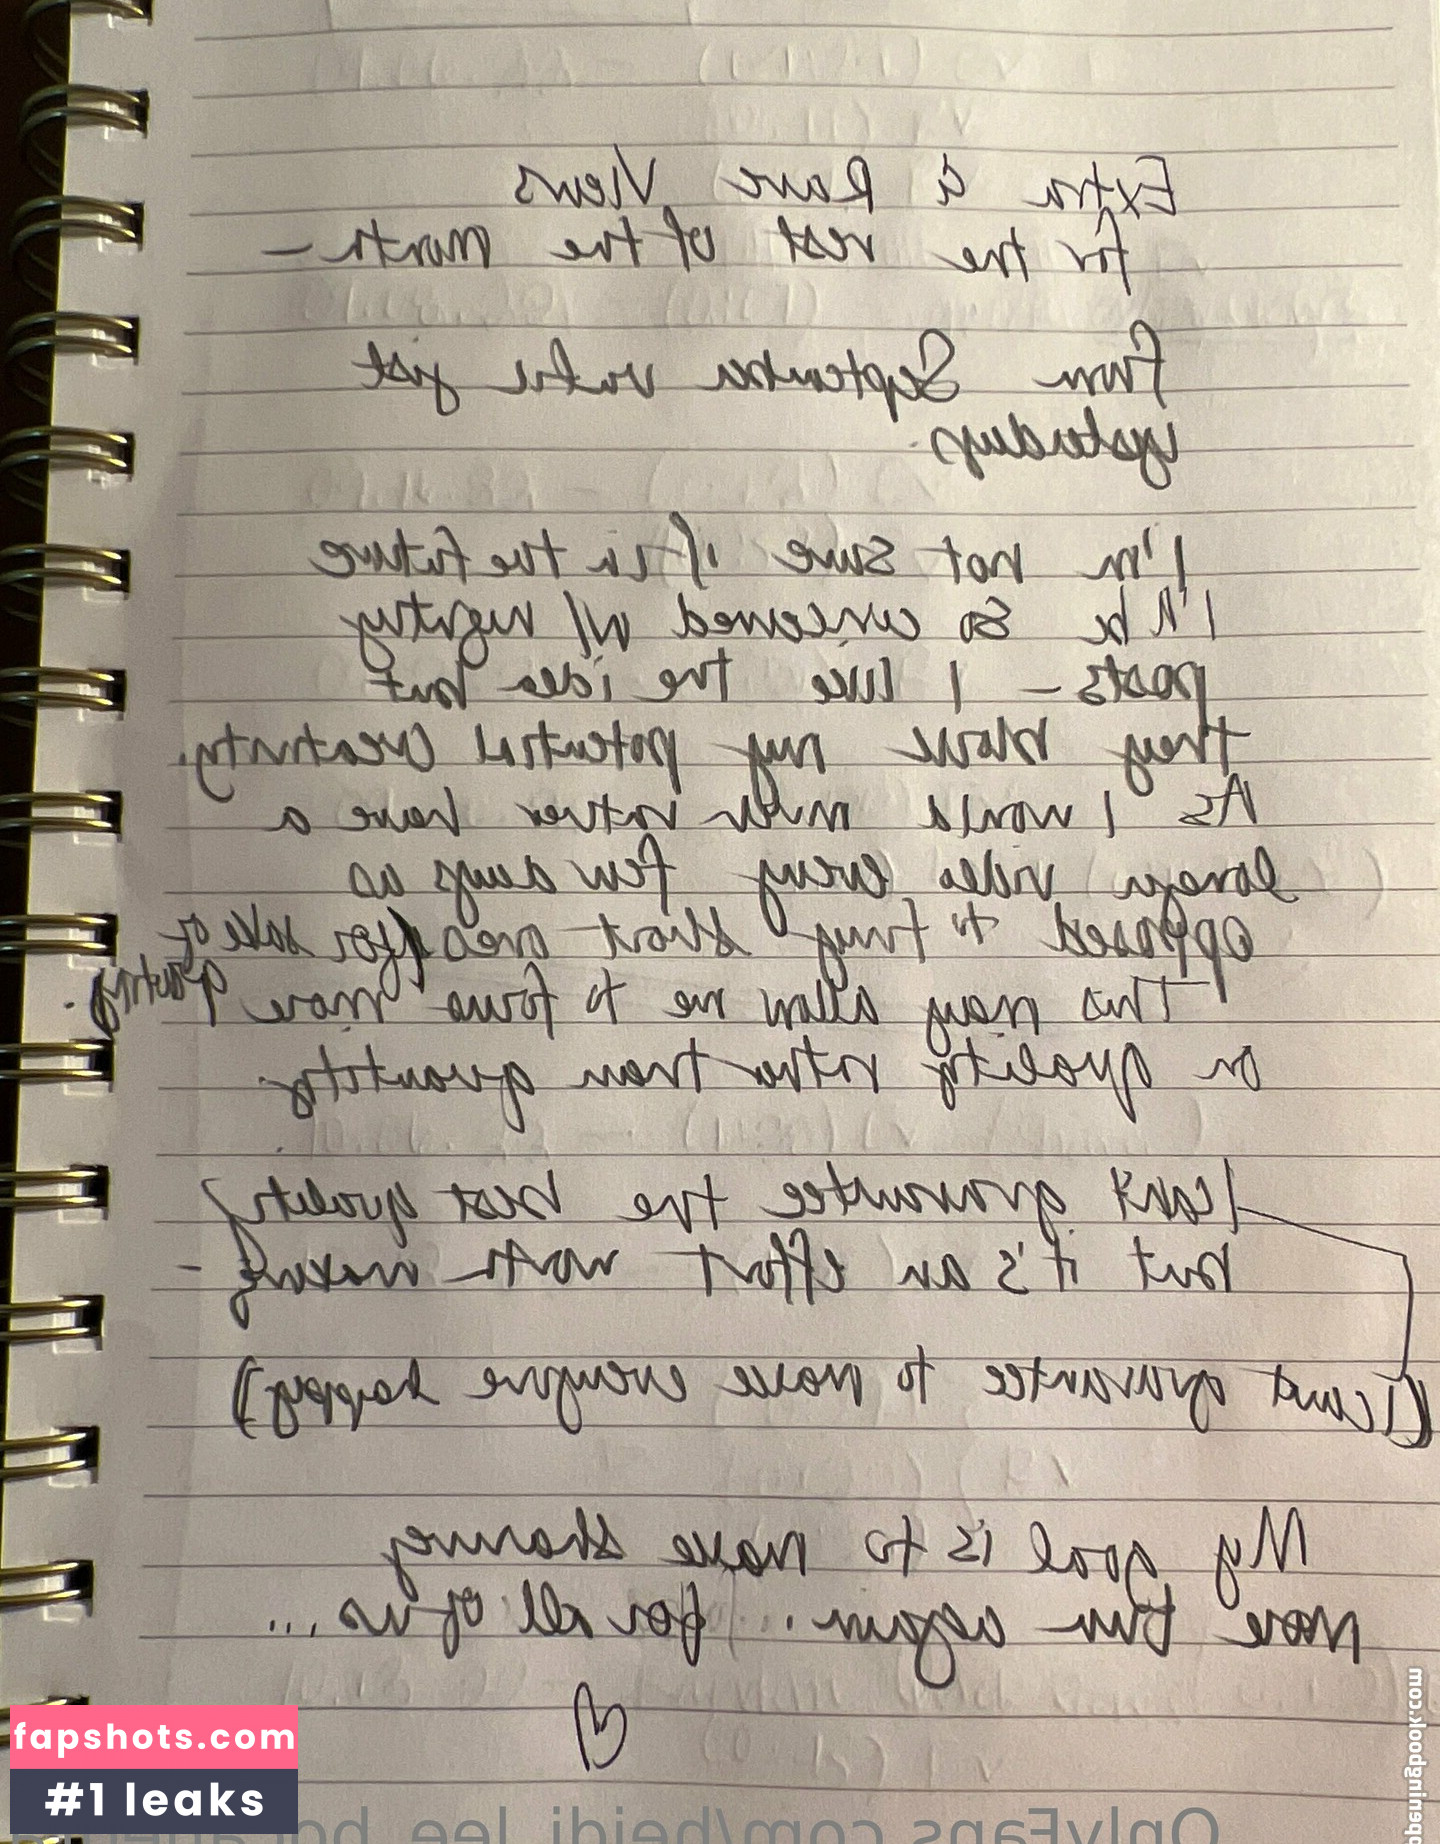 Extra & Rare Views
for the rest of the month –
From September until just
yesterday.
I'm not sure if in the future
I'll be so concerned w/ nightly
posts – I like the idea but
they block my potential creativity.
As I would much rather have a
longer video every few days as
opposed to tiny short ones (for sake of
posting).
This may allow me to focus more
on quality rather than quantity.
I can't guarantee the best quality
but it's an effort worth making –
(I can't guarantee to make everyone happy)
My goal is to make sharing
more fun again... for all of us ...
fapshots.com
#1 leaks
OnlyFans.com/heidi_lee_